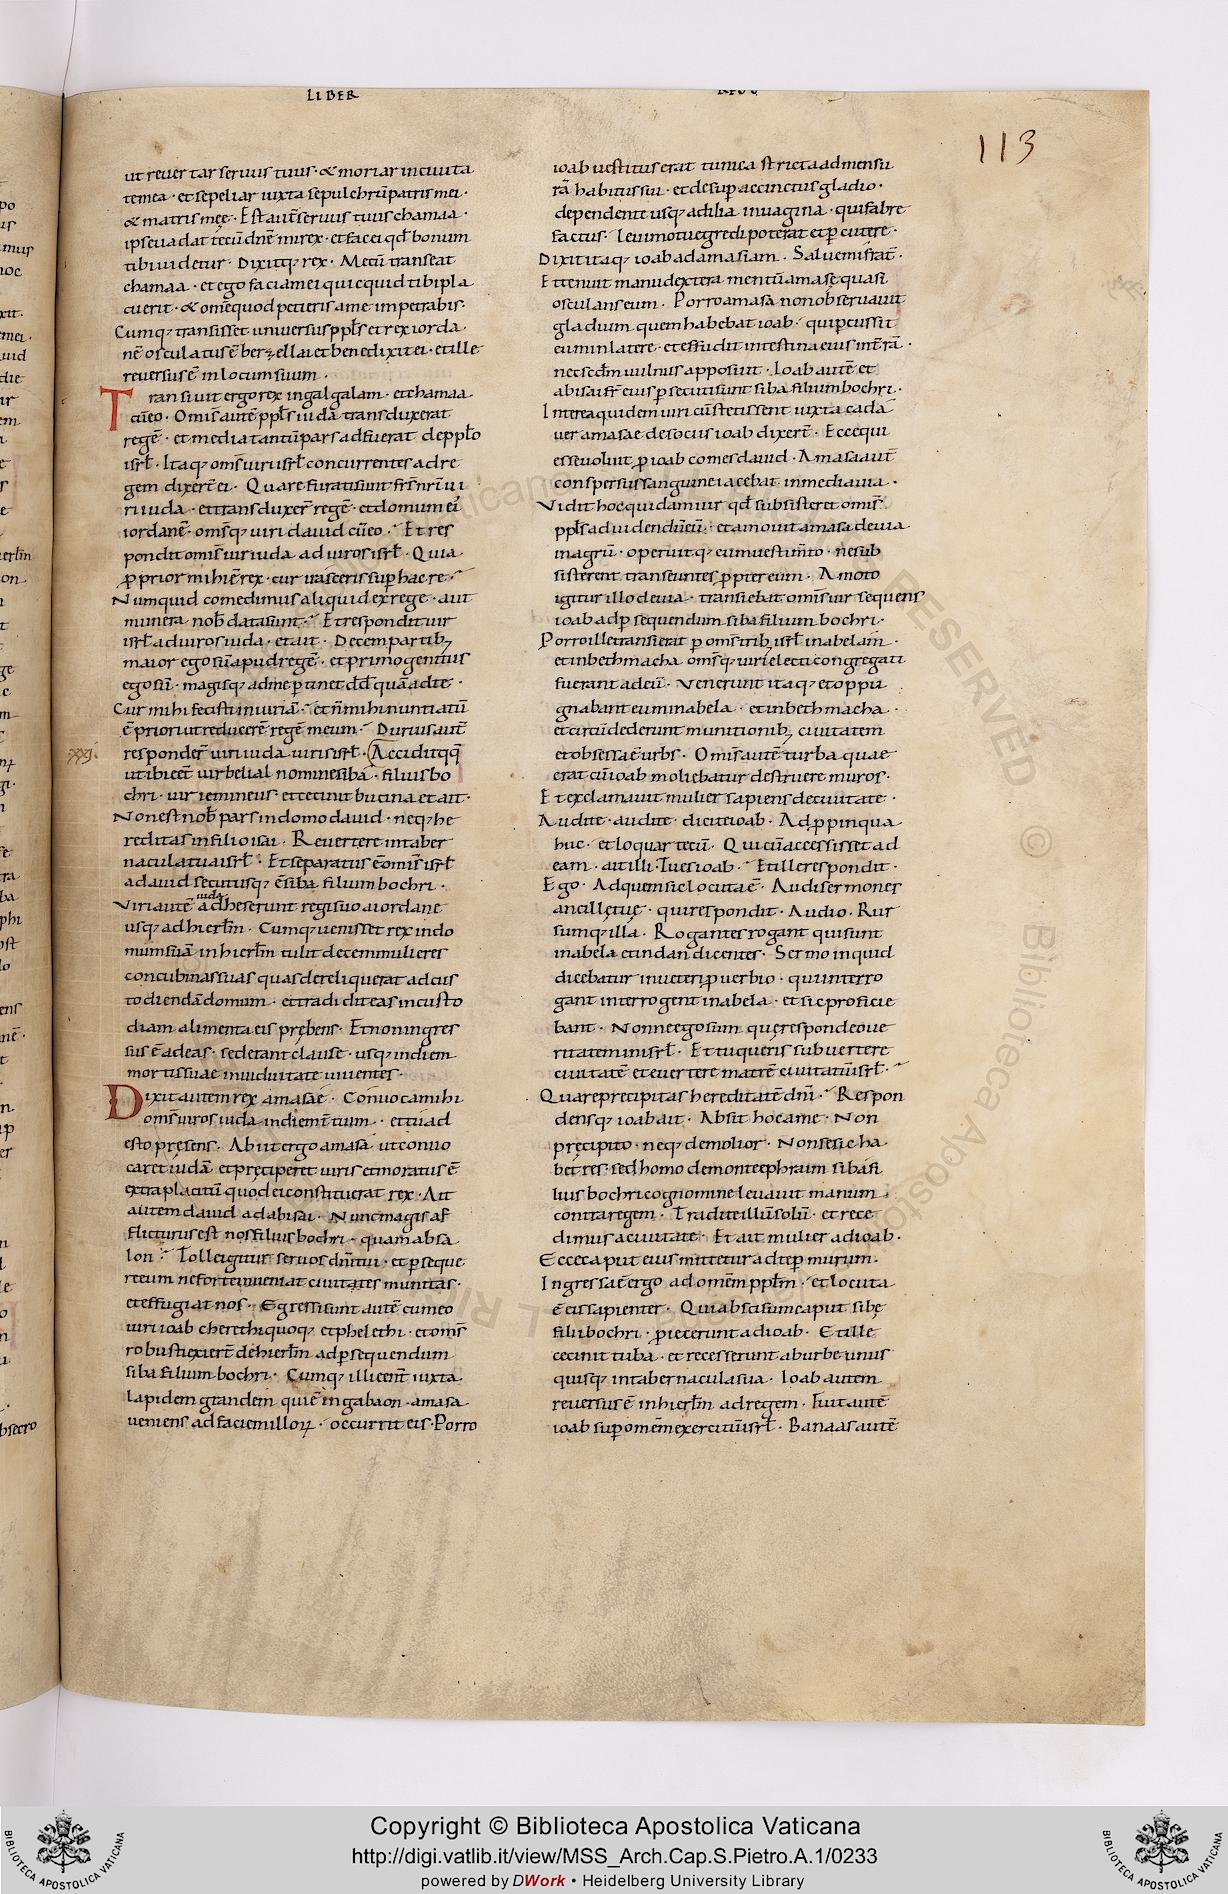 LIBER
REGŪ
113
ut revertar servus tuus · & moriar in civita
te mea · et sepeliar iuxta sepulchrū patris mei ·
& matris męe · Est autē servus tuus chamaa ·
ipse vadat tecū dn̄e mi rex · et fac ei qd̄ bonum
tibi videtur · Dixitq; rex · Mecū transeat
chamaa · et ego faciam ei quicquid tibi pla
cuerit · & om̄e quod petieris a me impetrabis ·
Cumq; transisset universus ppl̄s et rex iorda
nē osculatus ē berzellai et benedixit ei · et ille
reversus ē in locum suum ·
Transivit ergo rex in galgalam · et chamaa
cū eo · Omis autē ppl̄s iudā transduxerat
regē · et media tantū pars adfuerat de pplō
isrl̄ · Itaq; oms̄ viri isrl̄ concurrentes ad re
gem dixer̄t ei · Quare furati sunt fr̄s nr̄i vi
ri iuda · et transduxer̄ regē · et domum ei'
iordanē · oms̄q; viri david cū eo · Et res
pondit omis vir iuda ad viros isrl̄ · Quia
ꝓprior mihi ē rex · cur irasceris sup hac re ·
Numquid comedimus aliquid ex rege · aut
munera nob̄ data sunt · Et respondit vir
isrl̄ ad viros iuda · et ait · Decem partib;
maior ego sū apud regē · et primogenitus
ego sū · magisq; ad me ptinet dd̄ quā ad te ·
Cur mihi fecisti iniuriā · et n̄ mihi nuntiatū
ē priori ut reducerē regē meum · Durius autē
responder̄ viri iuda viris isrl̄ · Accidit qq
xxj.
ut ibi eet̄ vir belial nomine siba · filius bo
chri · vir iemineus · et cecinit bucina et ait ·
Non est nob̄ pars in domo david · neq; he
reditas in filio isai · Revertere in taber
nacula tua isrl̄ · Et separatus ē omis isrl̄
a david secutusq; ē siba filium bochri ·
iuda
Viri autē adheserunt regi suo a iordane
usq; ad hierl̄m · Cumq; venisset rex in do
mum suā in hierl̄m tulit decem mulieres
concubinas suas quas dereliquerat ad cus
todiendā domum · et tradidit eas in custo
diam alimenta eis prębens · Et non ingres
sus ē ad eas · sed erant clause · usq; in diem
mortis suae in viduitate viventes ·
Dixit autem rex amasae · Convoca mihi
oms̄ viros iuda in diem t̄tium · et tu ad
esto pręsens · Abiit ergo amasa · ut convo
caret iudā · et pręciperet viris et moratus ē
extra placitū quod ei constituerat rex · Ait
autem david ad abisai · Nunc magis af
flicturus est nos filius bochri · quam absa
lon · Tolle igitur servos dn̄i tui · et pseque
re eum ne forte inveniat civitates munitas ·
et effugiat nos · Egressi sunt autē cum eo
viri ioab cherethi quoq; et phelethi · et oms̄
robusti exier̄t de hierl̄m ad psequendum
siba filium bochri · Cumq; illi eent̄ iuxta
lapidem grandem qui ē in gabaon · amasa
veniens ad faciem illoꝝ · occurrit eis · Porro
ioab vestitus erat tunica stricta ad mensu
rā habitus sui · et desup accinctus gladio ·
dependente usq; ad ilia in vagina · qui fabre
factus · levi motu egredi poterat et pcutere ·
Dixit itaq; ioab ad amasiam · Salve mi frat̄ ·
Et tenuit manu dextera mentū amasę quasi
osculans eum · Porro amasa non observavit
gladium quem habebat ioab · qui pcussit
eum in latere · et effudit intestina eius in t̄rā ·
nec scd̄m vulnus apposuit · Ioab autē et
abisai fr̄ eius psecuti sunt siba filium bochri ·
Interea quidem viri cū stetissent iuxta cada
ver amasae de sociis ioab dixer̄t · Ecce qui
esse voluit p ioab comes david · Amasa aut̄
conspersus sanguine iacebat in media via ·
Vidit hoc quidam vir qd̄ subsisteret omis
ppl̄s ad videndū eū · et amovit amasa de via
in agrū · operuitq; eum vestim̄to · ne sub
sisterent transeuntes ꝓpter eum · Amoto
igitur illo de via · transiebat omis vir sequens
ioab ad psequendum siba filium bochri ·
Porro ille transierat p oms̄ trib; isrl̄ in abelam ·
et in bethmacha oms̄q; viri electi congregati
fuerant ad eū · Venerunt itaq; et oppu
gnabant eum in abela · et in bethmacha ·
et circūdederunt munitionib; civitatem
et obsessa ē urbs · Omis autē turba quae
erat cū ioab moliebatur destruere muros ·
Et exclamavit mulier sapiens de civitate ·
Audite · audite · dicite ioab · Adꝓpinqua
huc · et loquar tecū · Qui cū accessisset ad
eam · ait illi · Tu es ioab · Et ille respondit ·
Ego · Ad quem sic locuta ē · Audi sermones
ancillę tuę · qui respondit · Audio · Rur
sumq; illa · Rogantes rogant qui sunt
in abela et in dan dicentes · Sermo inquid
dicebatur in veteri ꝓverbio · qui interro
gant interrogent in abela · et sic proficie
bant · Nonne ego sum quę respondeo ve
ritatem in isrl̄ · Et tu quęris subvertere
civitatē et evertere matrē civitatū isrl̄ ·
Quare pręcipitas hereditatē dn̄i · Respon
densq; ioab ait · Absit hoc a me · Non
pręcipito · neq; demolior · Non se sic ha
bet res · sed homo de monte ephraim siba fi
lius bochri cognomine levavit manum
contra regem · Tradite illū solū · et rece
dimus a civitate · Et ait mulier ad ioab ·
Ecce caput eius mittetur ad te p murum ·
Ingressa ē ergo ad omēm pplm̄ · et locuta
ē eis sapienter · Qui abscisum caput sibę
filii bochri · ꝓiecerunt ad ioab · Et ille
cecinit tuba · et recesserunt ab urbe unus
quisq; in tabernacula sua · Ioab autem
reversus ē in hierl̄m ad regem · Fuit autē
ioab sup omēm exercitum isrl̄ · Banaas autē
Copyright © Biblioteca Apostolica Vaticana
http://digi.vatlib.it/view/MSS_Arch.Cap.S.Pietro.A.1/0233
powered by DWork • Heidelberg University Library